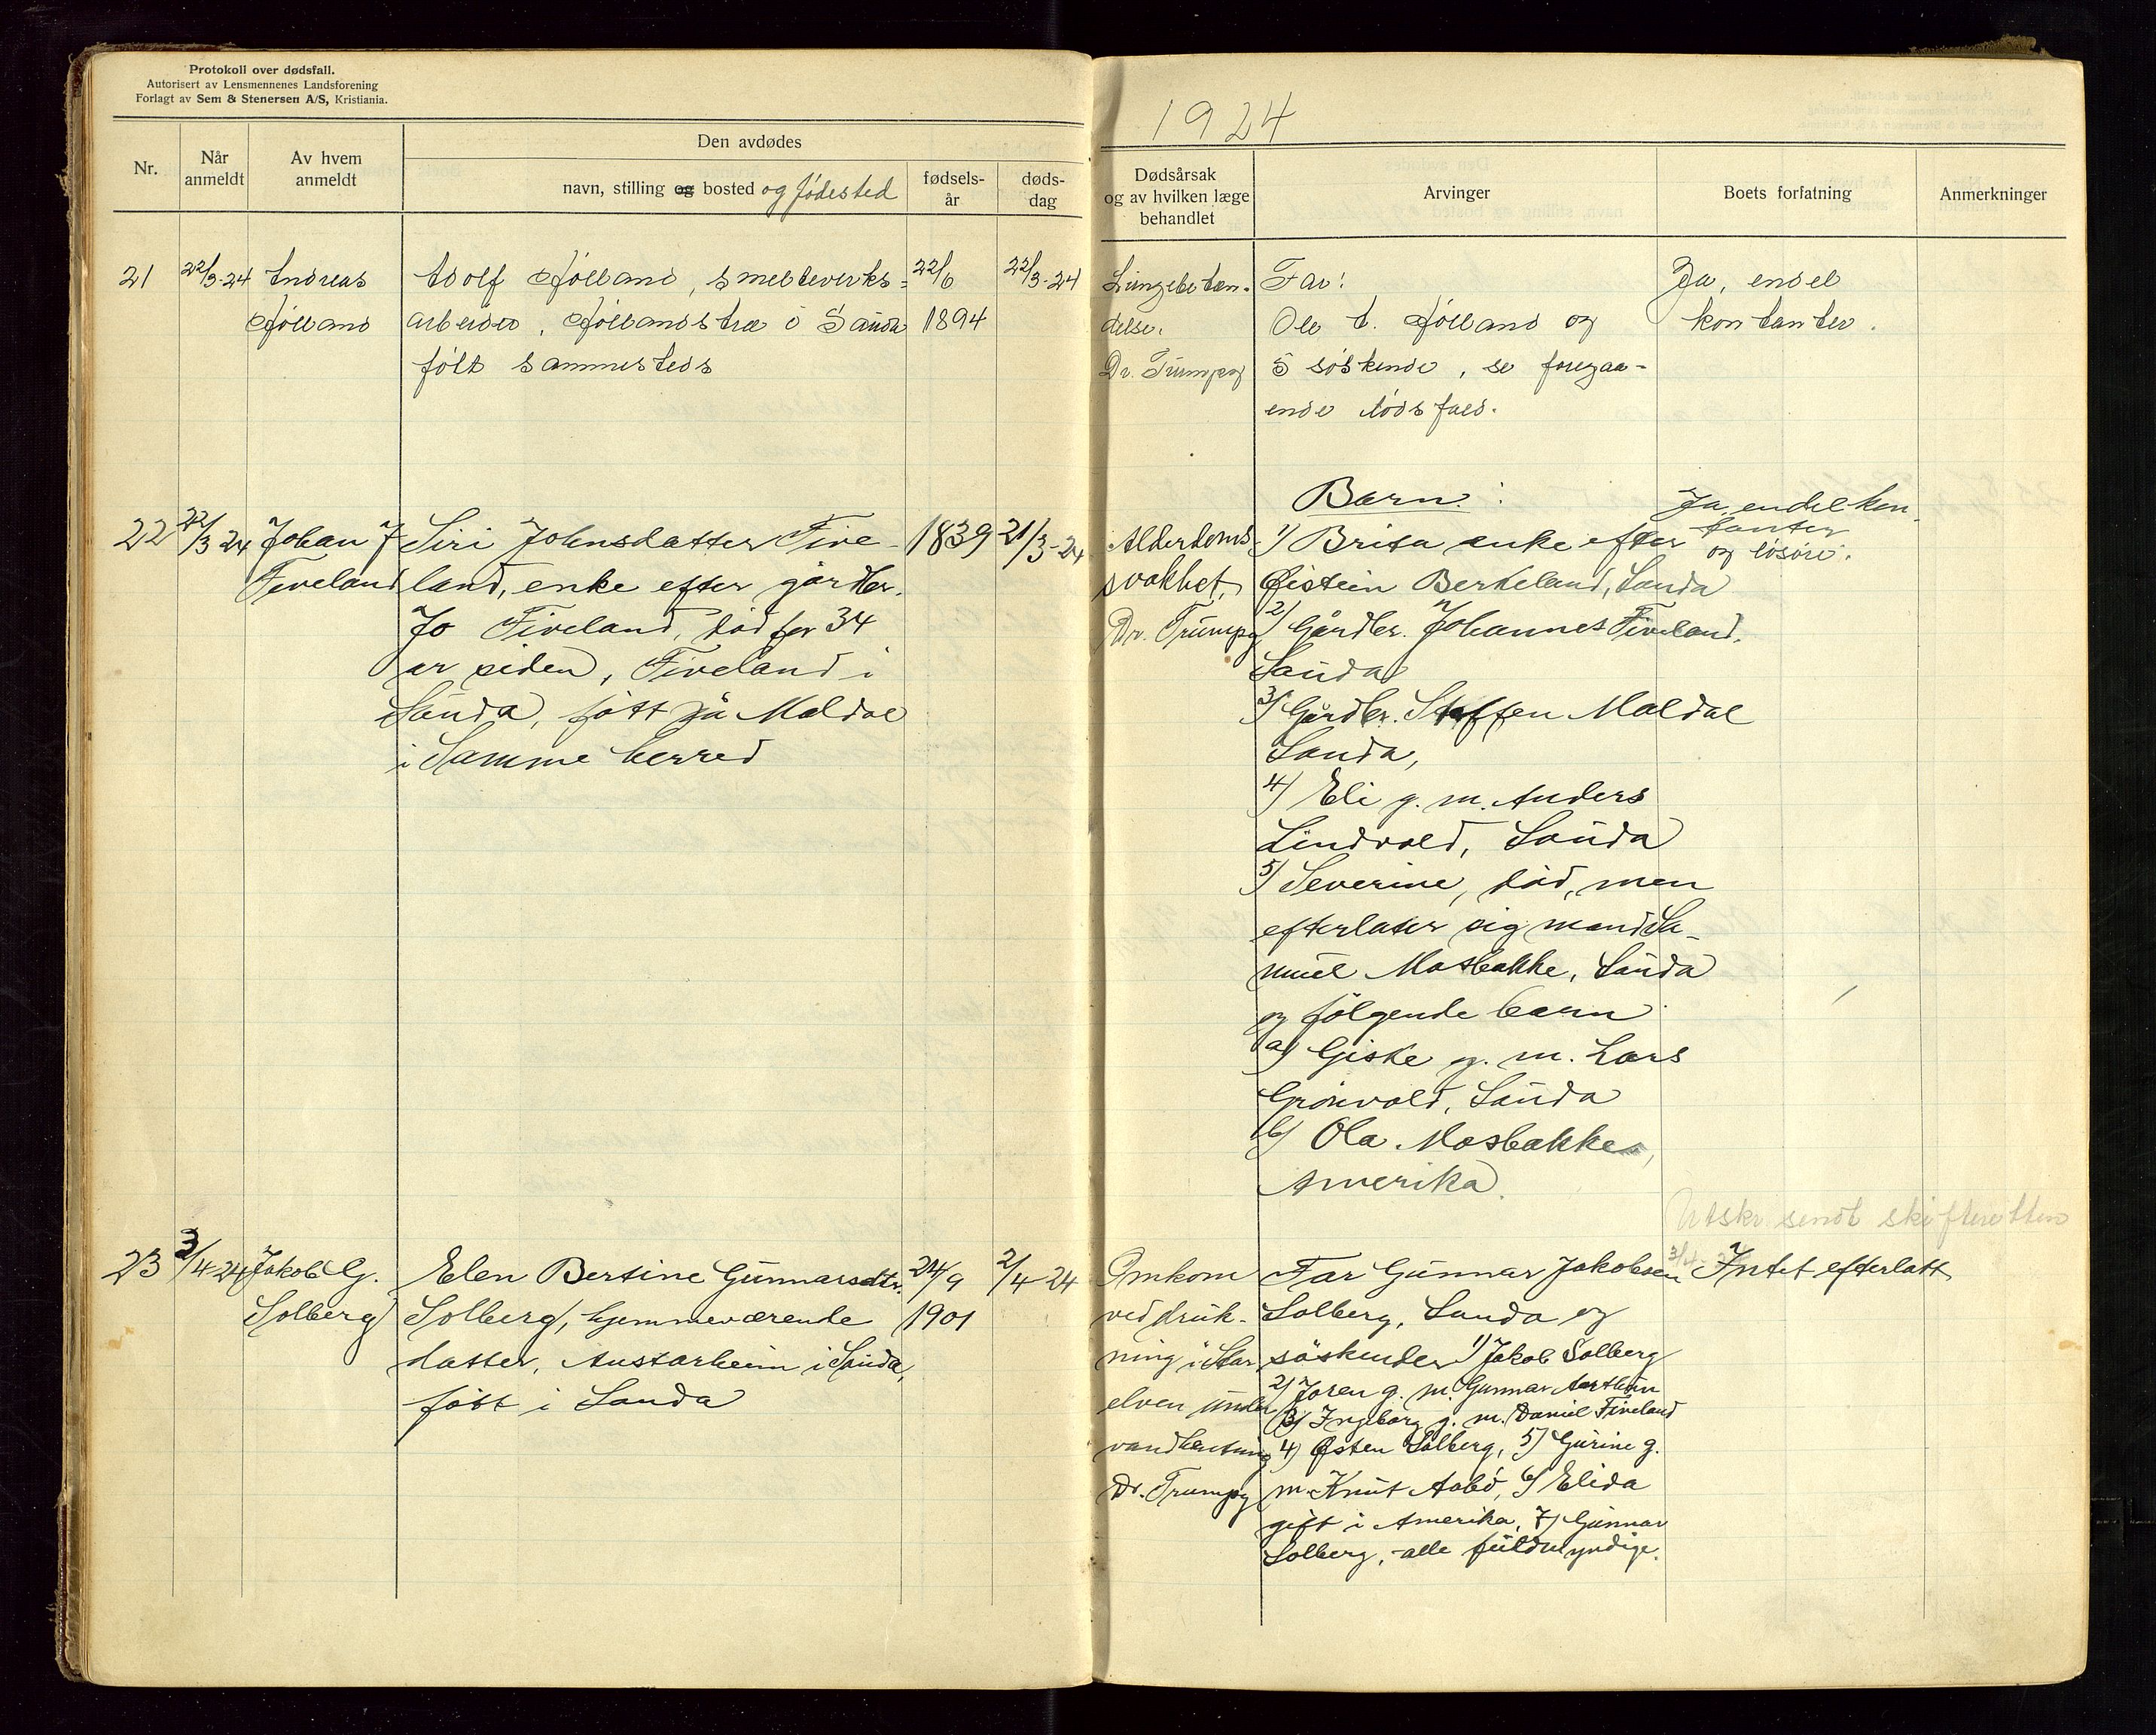 Protokoll over dødsfall.
Autorisert av Lensmennenes Landsforening
Forlagt av Sem & Stenersen A/S, Kristiania.
Nr.
Når anmeldt
Av hvem anmeldt
Den avdødes
navn, stilling og bosted og fødested
fødsels-år
døds-dag
21
22/3-24
Andreas
Jølland
Adolf Jølland, smelteverks-
arbeider, Jøllandstræ i Sauda
født sammesteds
22/6
1894
22/3-24
22
22/3 24
Johan J
Fiveland
Siri Johnsdatter Five-
land, enke efter gårdbr.
Jo Fiveland, død for 34
år siden, Fiveland i
Sauda, født på Maldal
i Samme herred
1839
21/3-24
23
3/4-24
Jakob G.
Solberg
Elen Bertine Gunnarsdtr.
Solberg, hjemmeværende
datter, Austarheim i Sauda,
født i Sauda
24/9
1901
2/4-24
1924
Dødsårsak
og av hvilken læge
behandlet
Arvinger
Boets forfatning
Anmerkninger
Lungebeten-
delse.
Dr. Trumpy
Far:
Ole A. Jølland og
5 søskende, se foregaa-
ende dødsfald.
Ja, endel
kontanter.
Alderdoms-
svakhet,
Dr. Trumpy
Barn:
1) Brita enke efter
Øistein Berkeland, Sauda
2) Gårdbr. Johannes Fiveland,
Sauda
3) Gårdbr. Steffen Maldal
Sauda,
4) Eli g. m. Anders
Lindvold, Sauda
5) Severine, død, men
efterlater sig mand Sa-
muel Mosbakke, Sauda
og følgende barn
a) Giske g. m. Lars
Grønvold, Sauda
b) Ola Mosbakke,
Amerika.
Ja, endel kon-
tanter
og løsøre.
Utskr. sendt skifteretten
3/4
Omkom
ved druk-
ning i Stor
elven under
vandhentning
Dr. Trumpy
Far Gunnar Jakobsen
Solberg, Sauda og
søskender 1) Jakob Solberg
2) Joren g. m. Gunnar
3) Ingeborg g. m. Daniel Fiveland
4) Østen Solberg, 5) Gurine g.
m. Knut Aabø, 6) Elida
gift i Amerika, 7) Gunnar
Solberg, - alle fuldmyndige.
Intet efterlatt